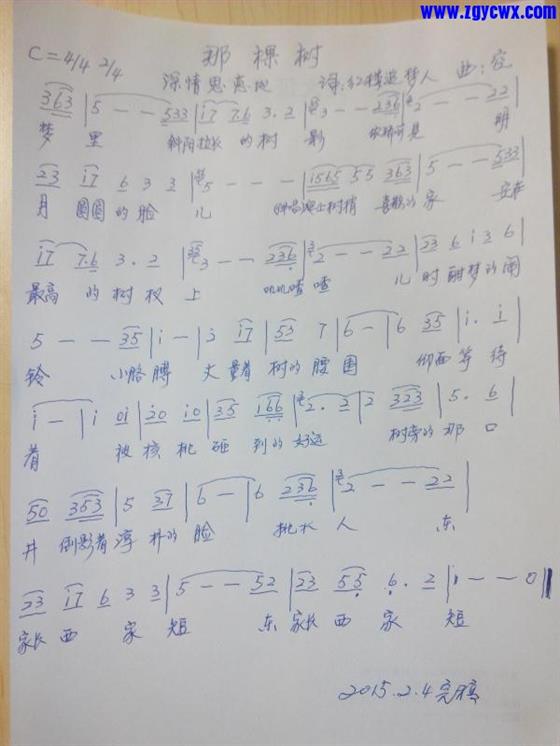 www.zgycwx.com
那棵树
C=4/4 2/4
深情思意地 词:红楼追梦人 曲:容
363 | 5 - - 533 | i7 76 3.2 | 3 - - 236 | 2 - - 22 |
梦 里 斜阳拉长 的树 影 依稀可见 明
23 i7 6 3 3 | 5 - - - | i565 55 363 | 5 - - 533
月 圆圆的脸 儿 树梢 喜鹊的家 安在
i7 7.6 3.2 | 3 - - 236 | 2 - - 22 | 23 6 i 3 6 |
最高 的树杈 上 叽叽喳喳 儿时酣梦的闹
5 - - 35 | i - | 3 i7 | 53 7 | 6 - | 6 35 | i. i |
铃 小胳膊 丈量着 树的腰围 仰面等待
i - | i 0i | i0 i0 | 35 i66 | 2. 2 | 2 323 | 5. 6 |
着 被核桃砸 到的好运 树旁的那口
50 353 | 5 37 | 6 - | 6 236 | 2 - - 22 |
井 倒影着淳朴的脸 挑水人 东
23 i7 6 3 3 | 5 - - 52 | 23 55 6. 2 | 1 - - 0 ||
家长西 家短 东家长西 家 短
2015.2.4完稿